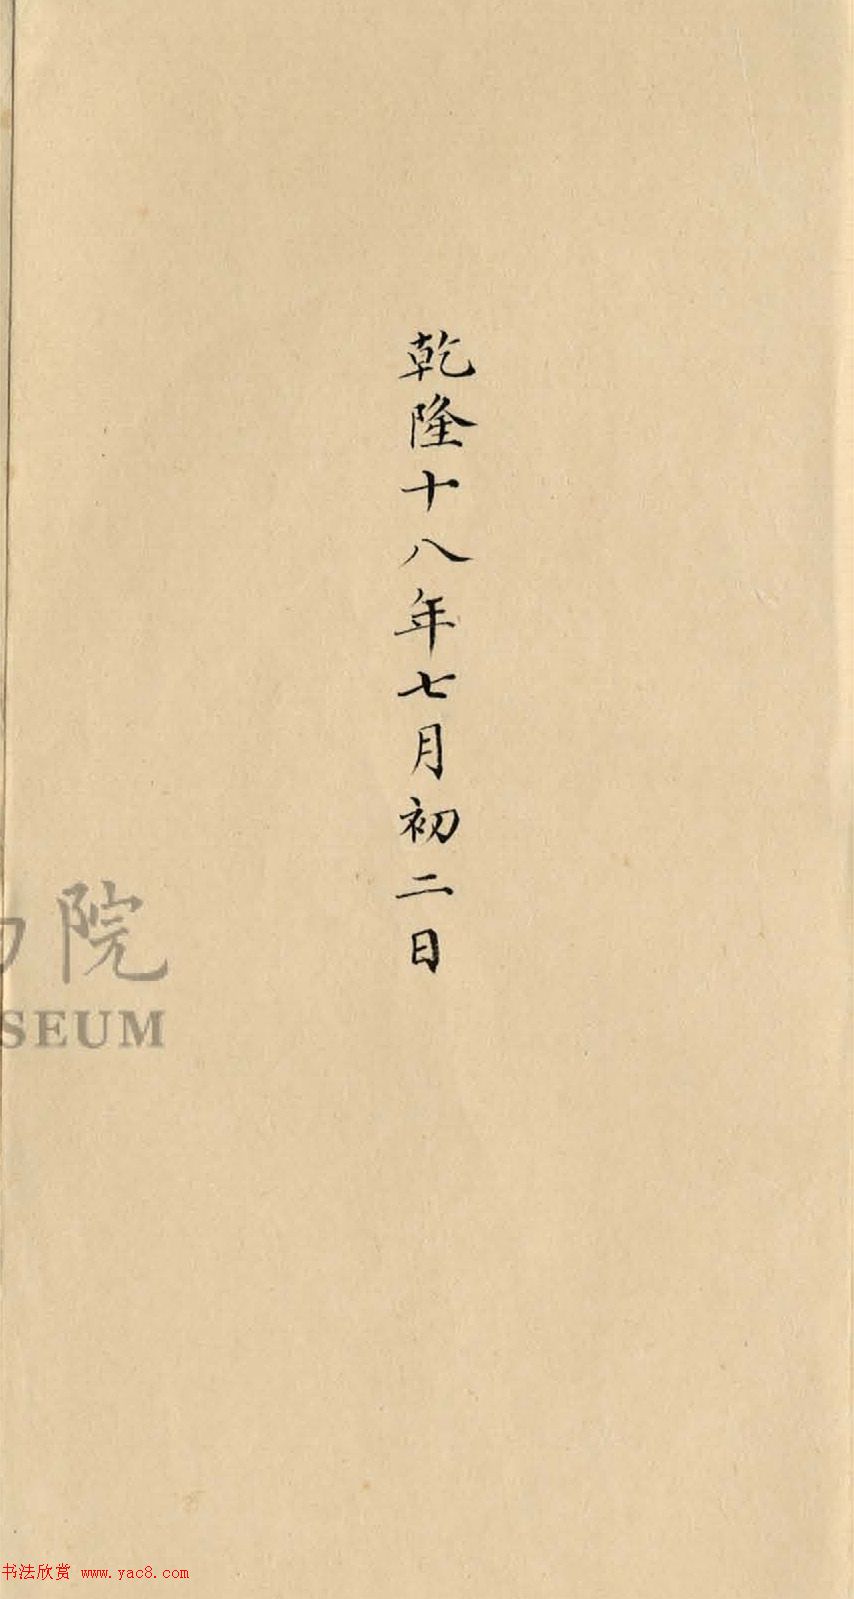 乾隆十八年七月初二日
院
SEUM
书法欣赏 www.yac8.com